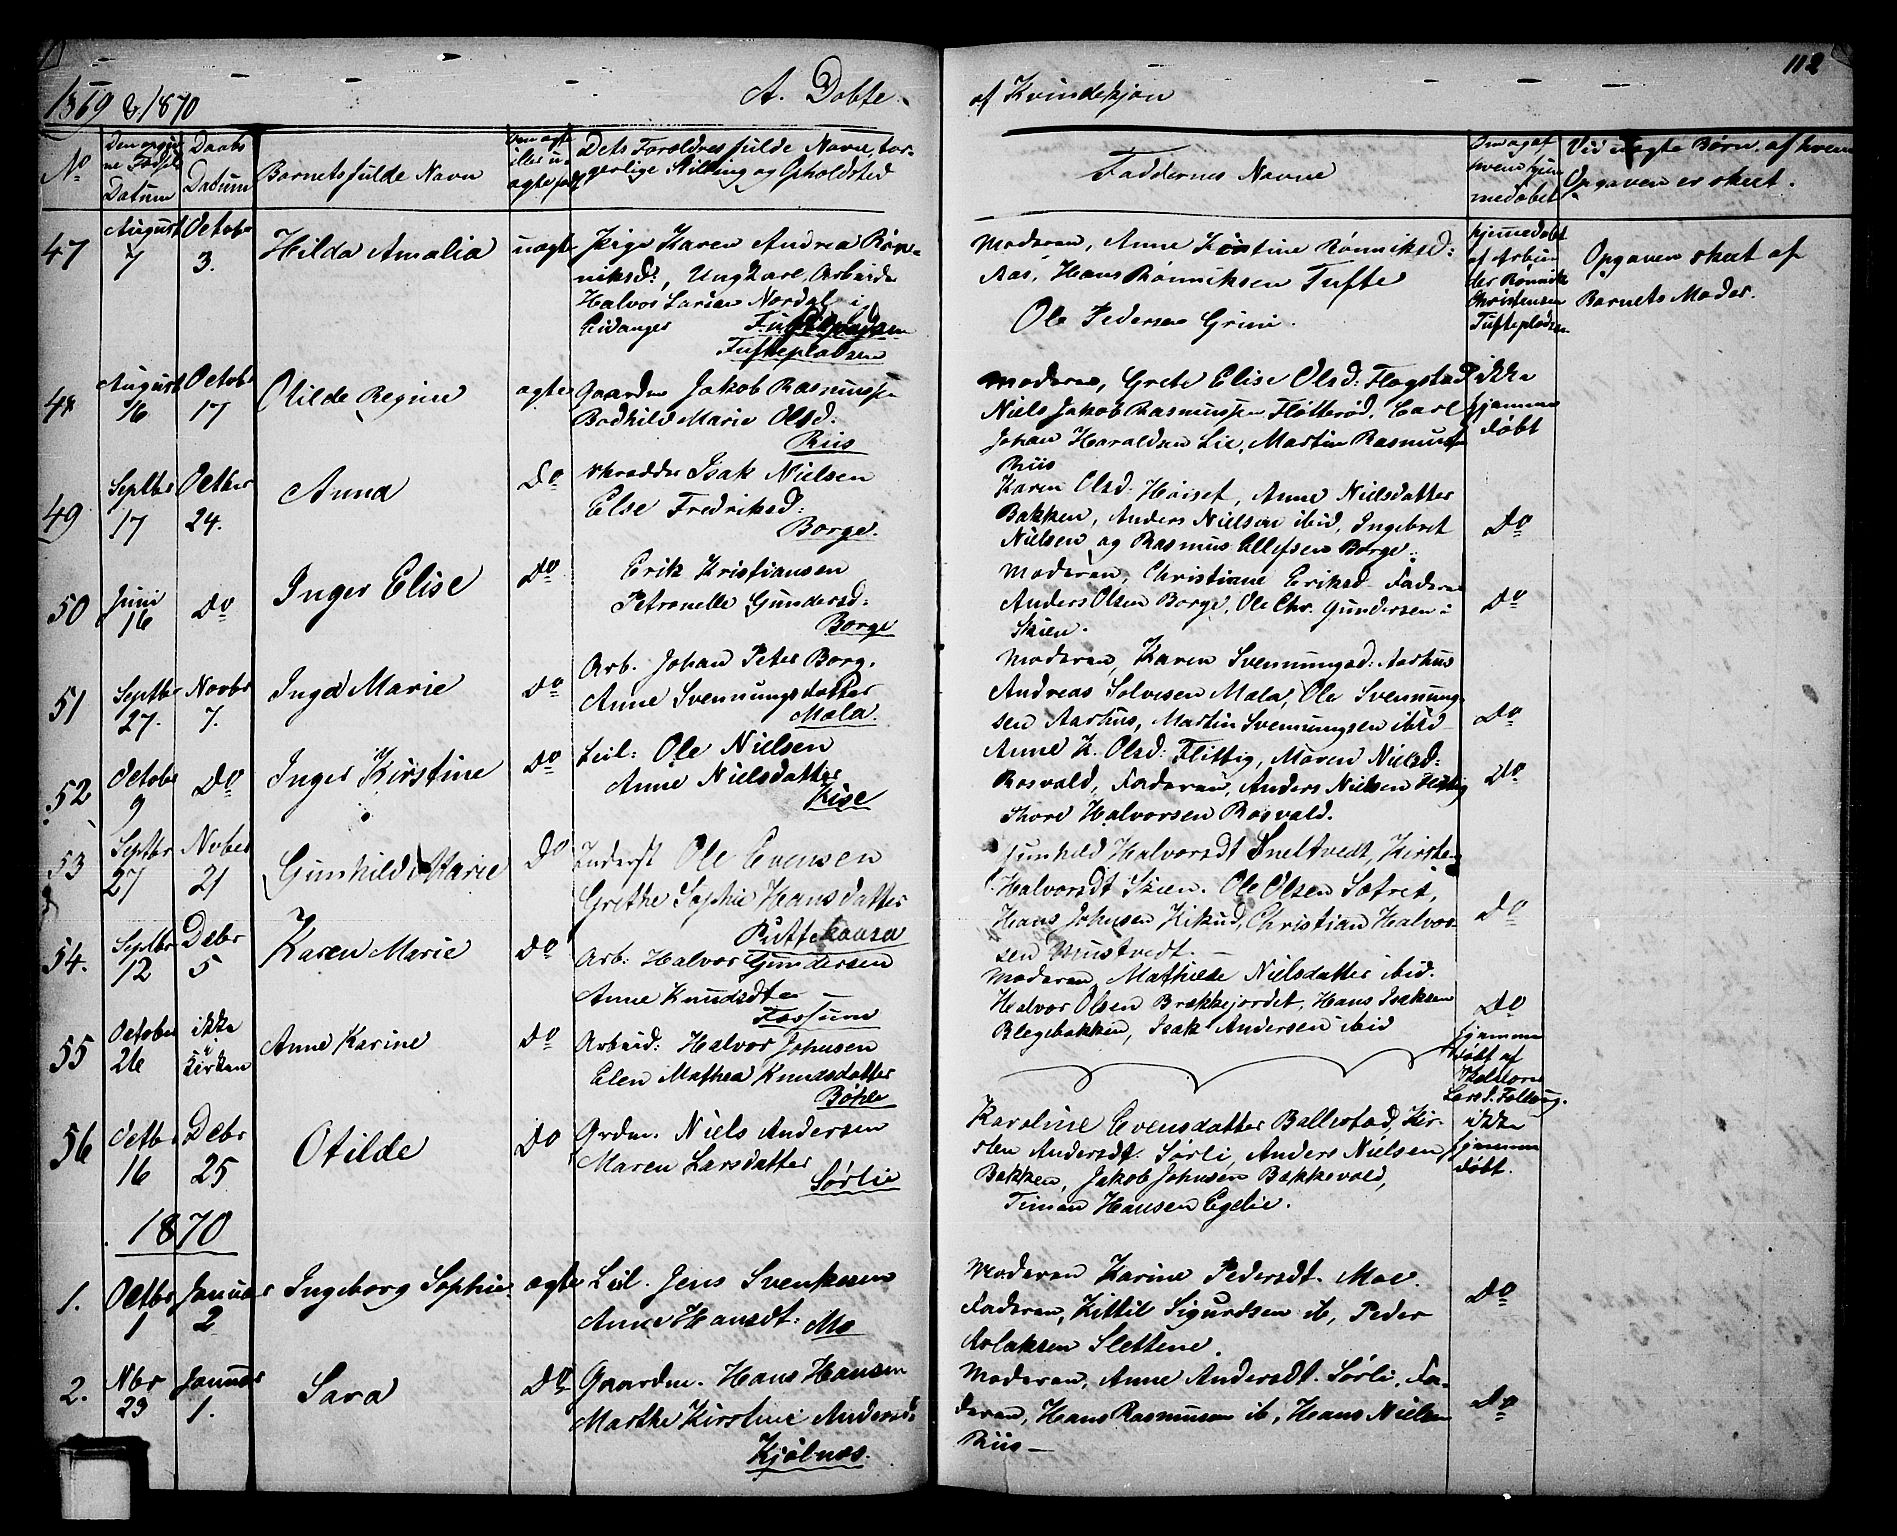 112
1869 & 1870
A. Døbte
af Kvindekjøn
No
Datum
Daabs Datum
Barnets fulde Navn
Dets Forældres fulde Navn, bor-
gerlige Stilling og Opholdsted
Faddernes Navne
hjem-
medøbt
Ved uægte Børn, af hvem
Opgaven er skeet.
47
August 7
Octobr 3.
Hilda Amalia
uægte
Pige Karen Andrea Røn-
niksd:, Ungkarl, Arbeider
Halvor Larsen Nordal i
Eidanger
Tuftepladsen
Moderen, Anne Kirstine Rønniksd:
Aas, Hans Rønniksen Tufte
Ole Pedersen Grini.
hjemmedøbt
af Arbei-
der Rønnik
Christensen
Tuftepladsen
Opgaven skeet af
Barnets Moder.
48
August 16
Octobr 17
Otilde Regine
ægte
Gaardm Jakob Rasmussen
Bodhild Marie Olsd:
Riis
Moderen, Grete Elise Olsd: Flogstad
Niels Jakob Rasmussen Fløtterød, Carl
Johan Haraldsen Lie, Martin Rasmussen
Riis
ikke
hjemme
døbt
49
Septbr 17
Octbr 24.
Anna
Do
Skrædder Isak Nielsen
Else Fredriksd:
Borge.
Karen Olsd. Høiset, Anne Nielsdatter
Bakken, Anders Nielsen ibid, Ingebret
Nielsen og Rasmus Ellefsen Borge.
Do
50
Juni 16
Do
Inger Elise
Do
Erik Kristiansen
Petronelle Gundersd:
Borge
Moderen, Christiane Eriksd. Faderen
Anders Olsen Borge, Ole Chr. Gundersen i
Skien.
Do
51
Septbr 27.
Novbr 7.
Inga Marie
Do
Arb. Johan Peter Borg.
Anne Svennungsdatter
Mæla.
Moderen, Karen Svennungsd: Aarhus
Andreas Solvesen Mæla, Ole Svennung-
sen Aarhus, Martin Svennungsen ibid
Do
52
Octobr 9
Do
Inger Kirstine
Do
Leil: Ole Nielsen
Anne Nielsdatter
Kise
Anne K. Olsd: Flittig, Maren Nielsd:
Rosvald, Faderen, Anders Nielsen Flittig
Thore Halvorsen Rosvald.
Do
53
Septbr 27
Novbr 21
Gunhild Marie
Do
Inderst Ole Evensen
Grethe Sophie Hansdatter
Gunhild Halvorsdt Sneltvedt, Kirsten
Halvorsdt Skien. Ole Olsen
Hans Johnsen, Christian Halvor-
sen
Do
54.
Septbr 12
Debr 5
Karen Marie
Do
Arb: Halvor Gundersen
Anne Knudsdt
Fossum
Moderen, Mathilde Nielsdatter ibid.
Halvor Olsen Brækkejordet, Hans Isaksen
Blegebakken, Isak Andersen ibid
Do
55
October 26
ikke
i
Kirken
Anne Karine
Do
Arbeid: Halvor Johnsen
Elen Mathea Knudsdatter
Bøhle
hjemme
døbt af
Lars
56
Octbr 16
Debr 25
Otilde
Do
Grdm. Niels Andersen
Maren Larsdatter
Sørlie
Karoline Evensdatter Ballestad, Kir-
sten Andersdt. Sørli, Anders Nielsen
Bakken, Jakob Johnsen Bakkevold,
Timan Hansen Egelie.
ikke
hjemme
døbt.
1870
1.
Octbr 1
Januar 2
Ingeborg Sophie
ægte
Leil. Jens Svenkesen
Anne Hansdt:
Mo
Moderen Karine Pedersdt. Moe.
Faderen, Kittil Sigurdsen ib, Peder
Aslaksen Slettene.
Do
2.
Nbr 23
Januar 1.
Sara
Do
Gaardm. Hans Hansen
Marthe Kirstine Andersd:
Kjølnæs.
Moderen, Anne Andersdt. Sørli, Fa-
deren, Hans Rasmusen ib, Hans Nielsen
Riis
Do